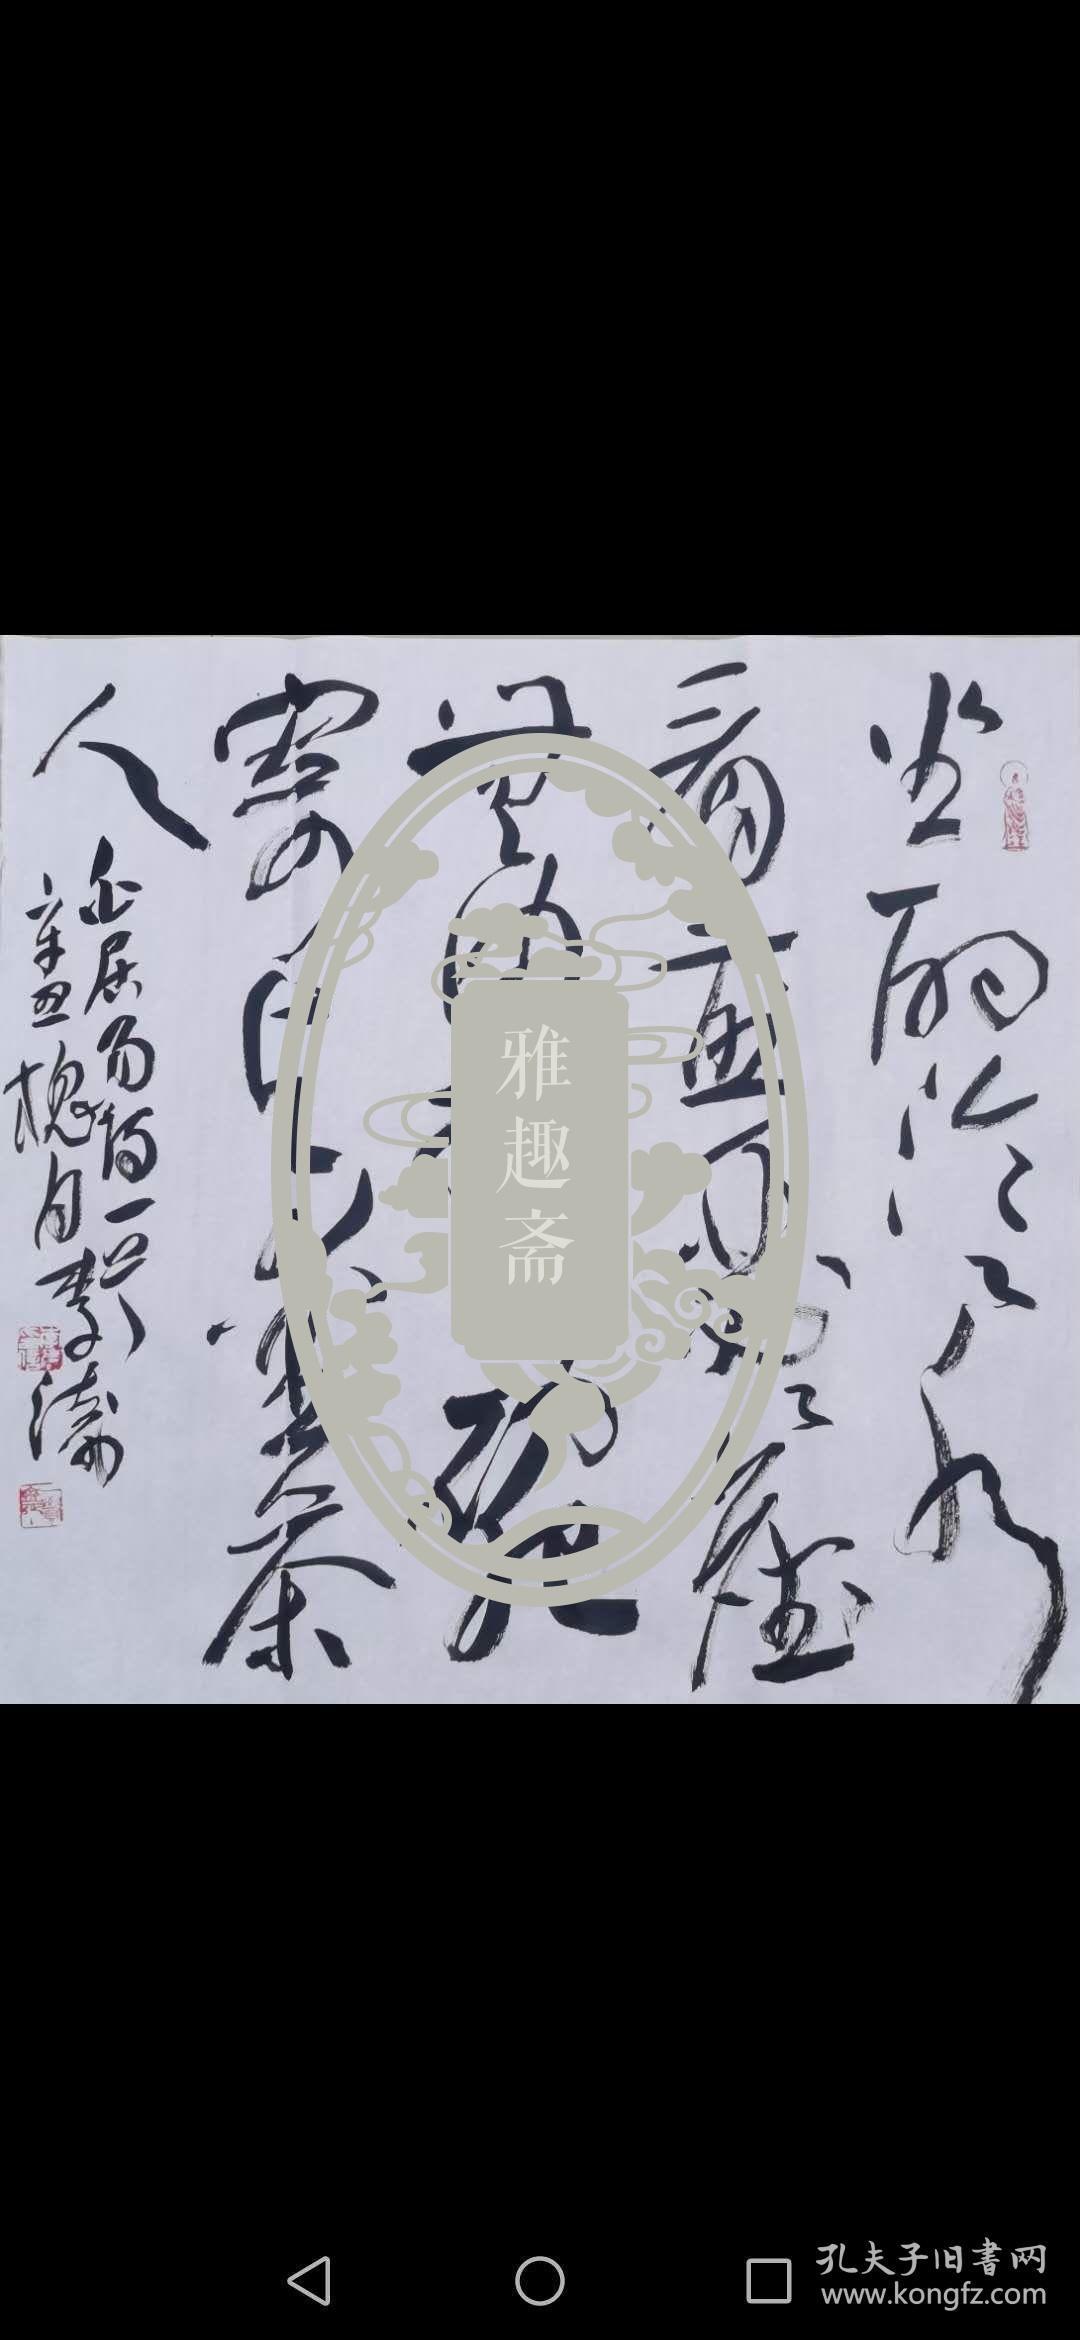 坐酌泠泠水
看煎瑟瑟尘
无由持一碗
寄与爱茶
人
白居易诗一首
辛丑槐月 李涛
雅趣斋
孔夫子旧书网
www.kongfz.com